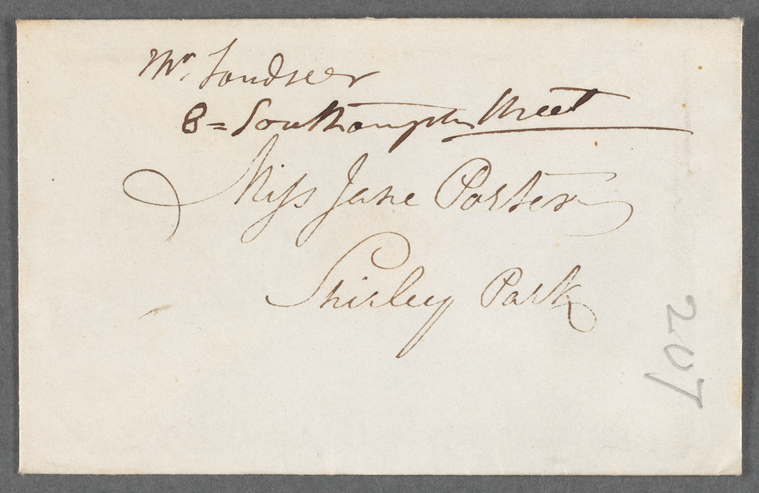 Mr. Landseer
8= Southampton Street
Miss Jane Porter
Shirley Park
207